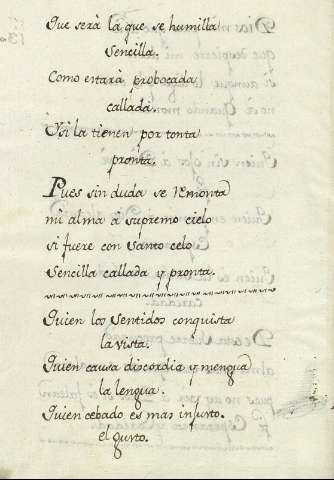 Que serà la que se humilla
Sencilla.
Como estarà probocada
callada.
Y si la tienen por tonta
pronta.
Pues sin duda se remonta
mi alma à supremo cielo
si fuere con santo celo
Sencilla callada y pronta.
Quien los Sentidos conquista
la vista.
Quien causa discordia y mengua
la lengua.
Quien cebado es mas injusto.
el gusto.